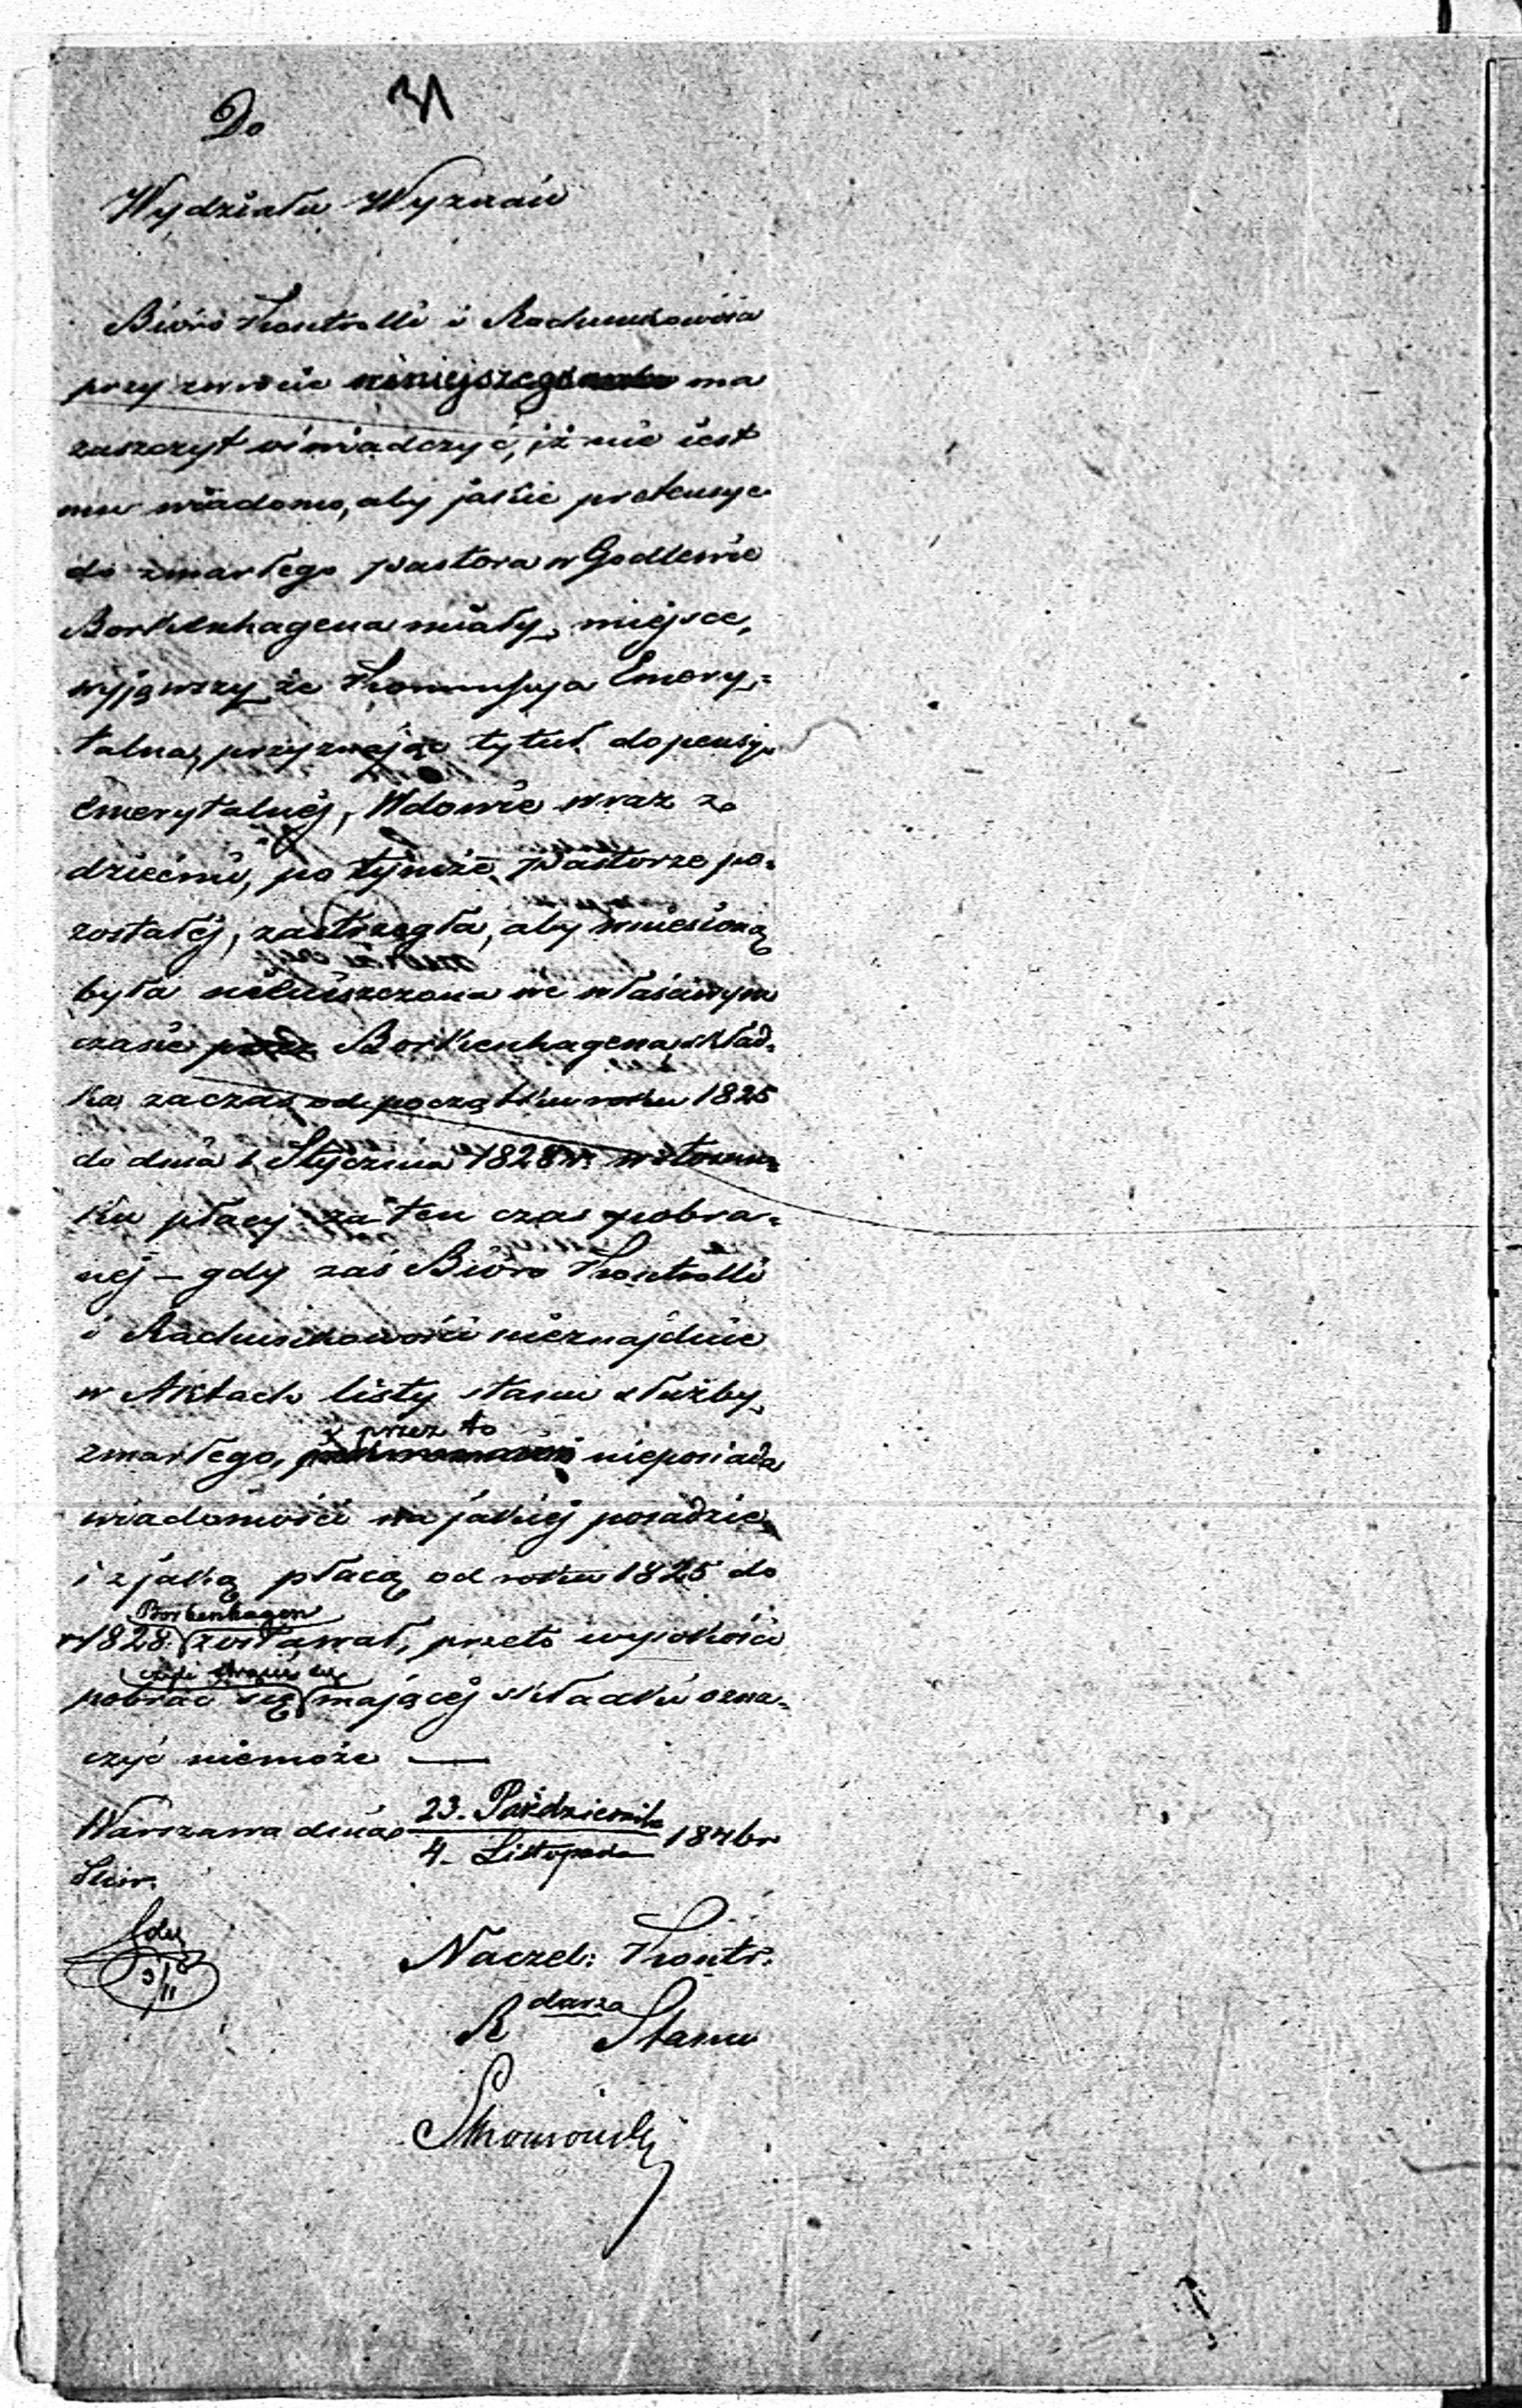 31
Do
Wydziału Wyznań
Biuro Kontrolli i Rachunkowości
przy zwrocie niniejszego ma
zaszczyt oświadczyć, iż nie iest
mu wiadomo, aby jakie pretensye
do zmarłego pastora w Godlewie
Borkenhagena miały miejsce,
wyjąwszy że Kommissya Emery=
talna, przyznając tytuł do pensyi
emerytalnéj, Wdowie wraz z
dziećmi, po tymże Pastorze po=
zostałéj, zastrzegła, aby wniesioną
była nieuiszczona we właściwym
czasie przez Borkenhagena skład=
ka za czas od początku roku 1825
do dnia 1 Stycznia 1828 r. w stosun=
ku płacy za ten czas pobra=
néj – gdy zaś Biuro Kontrolli
i Rachunkowości nieznajduie
w Aktach listy stanu służby
przez to
zmarłego, nieposiada
wiadomości na jakiéj posadzie
i z jaką płacą od roku 1825 do
Borkenhagen
r 1828 zostawał, przeto wysokości
pobrać się mającéj składki ozna=
czyć niemoże —
Warszawa dnia 23. Października
4. Listopada 1846 r
Naczel: Kontr.
R darza Stanu